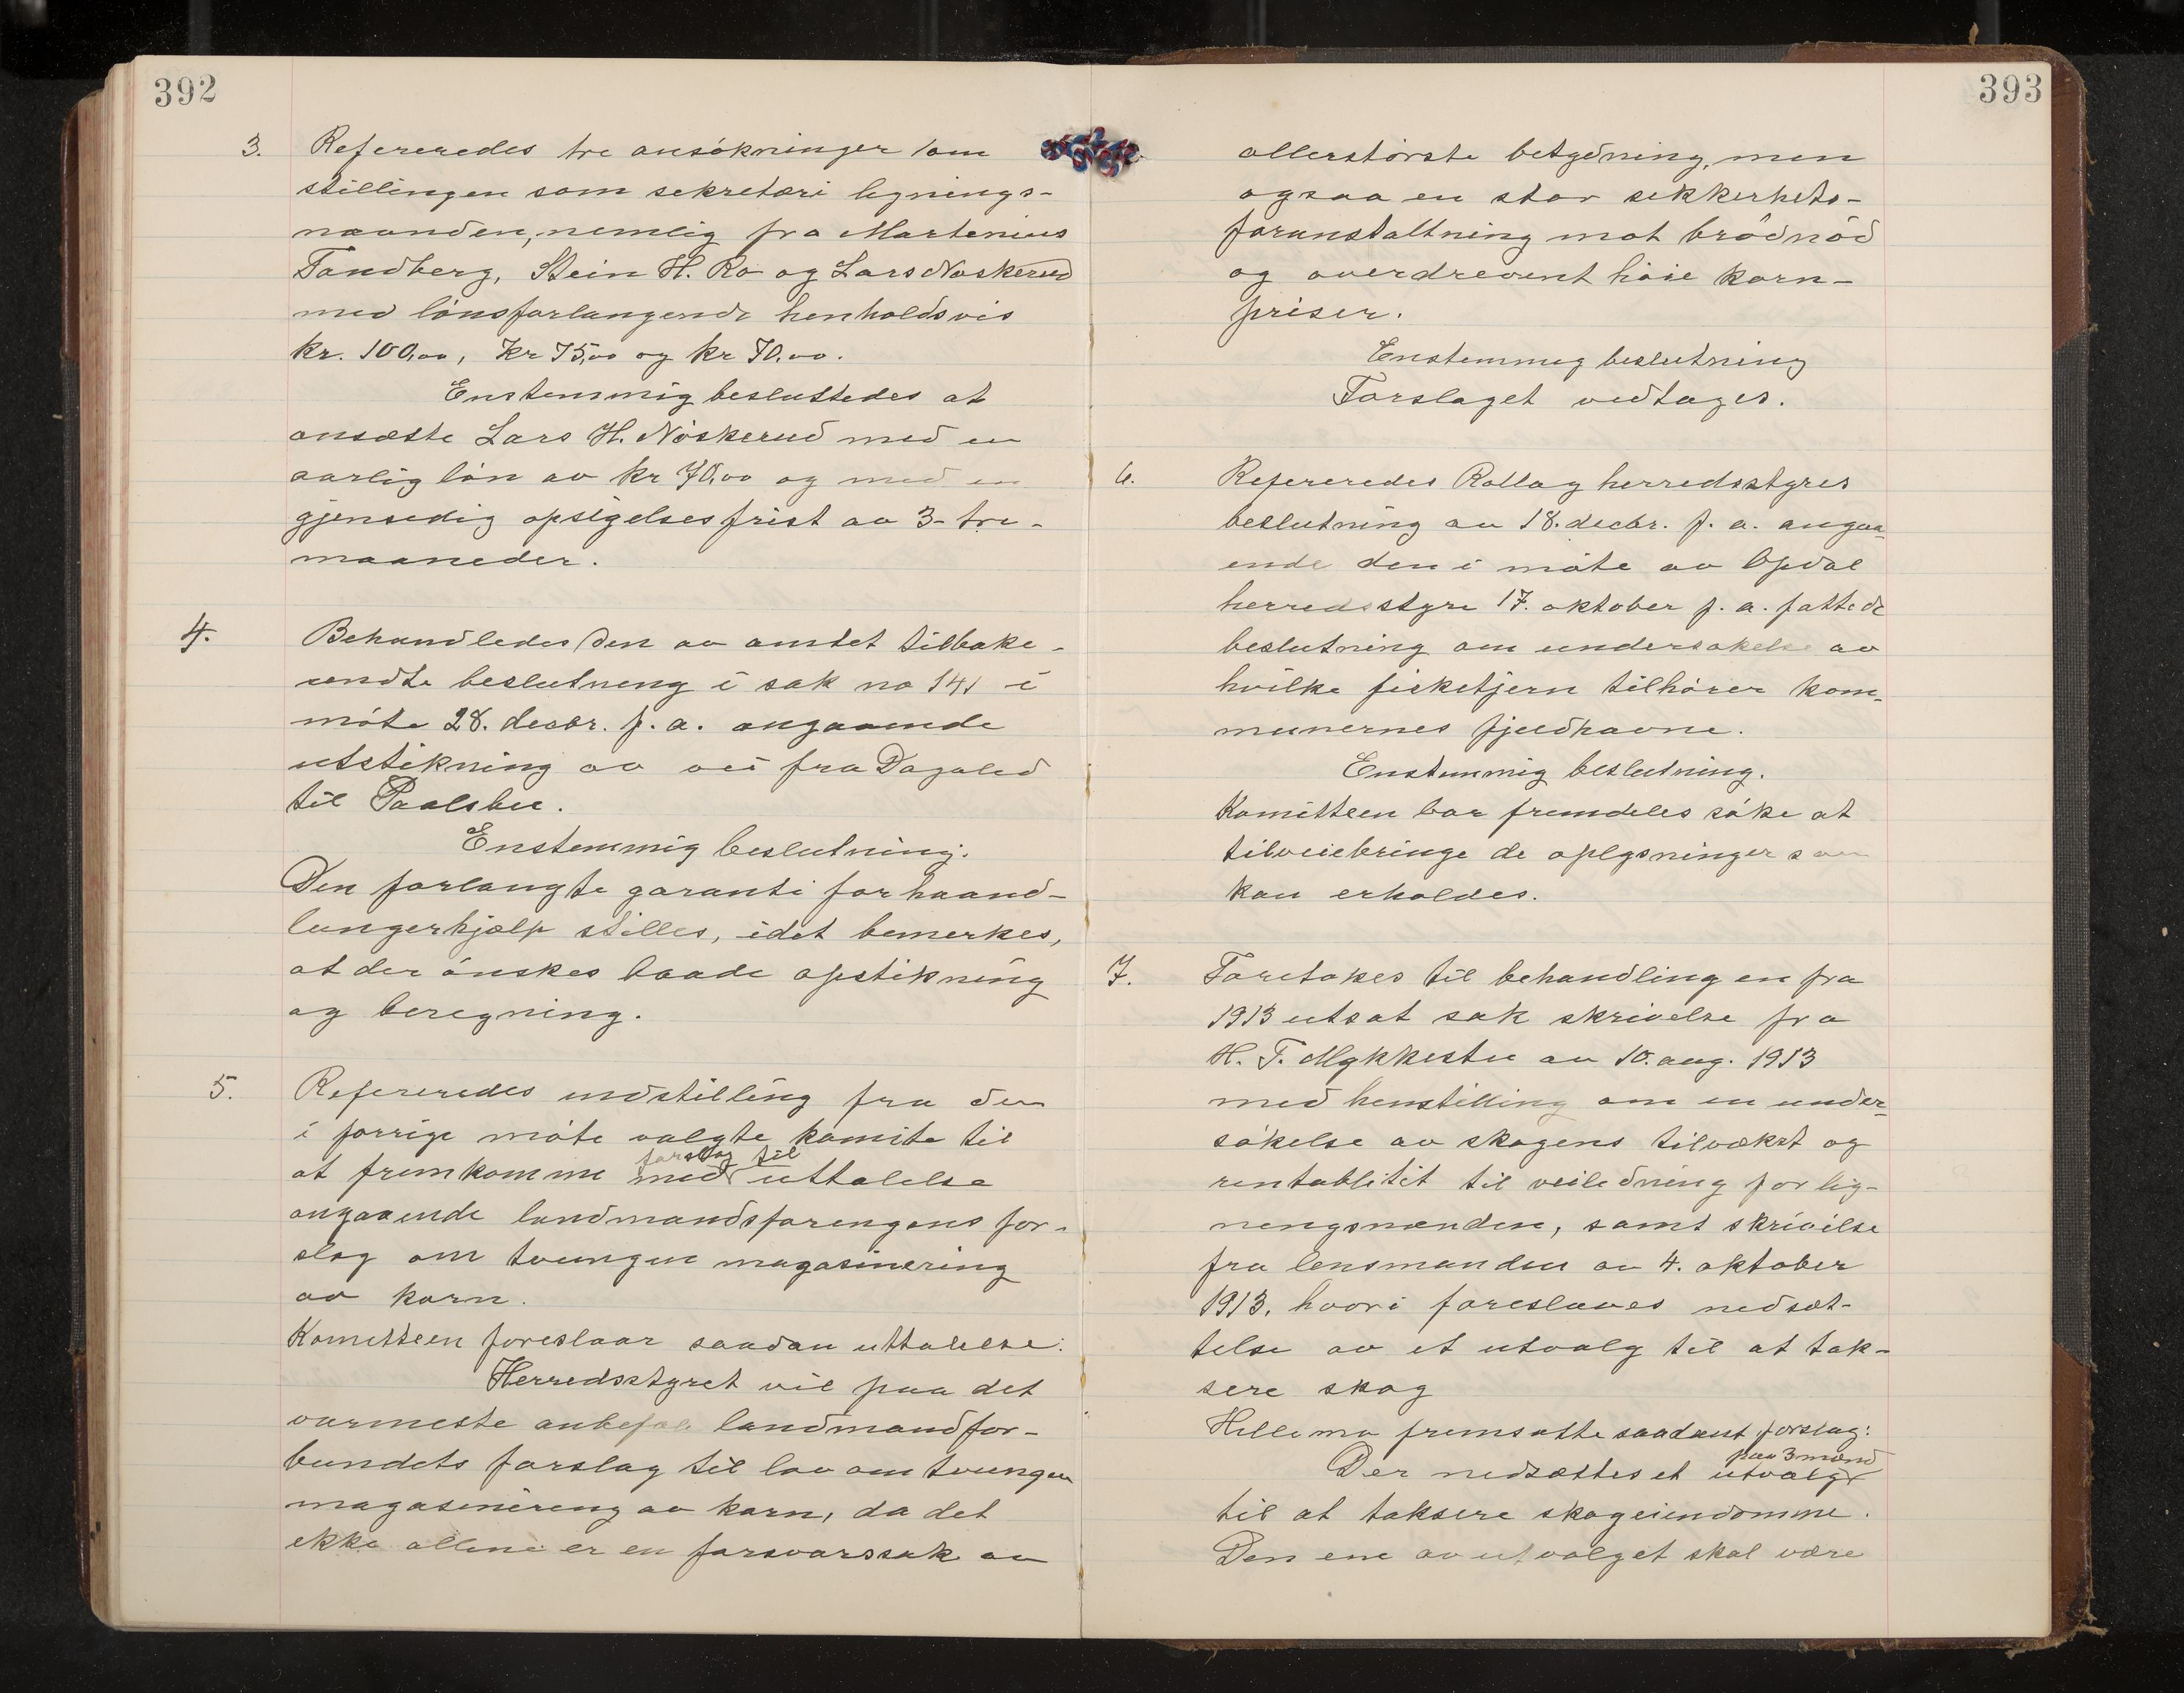 392
3. Refereredes tre ansökninger om
stillingen som sekretær i lignings-
nævnden, nemlig fra Martenius
Tandberg, Stein H. Ro og Lars Nöskerud
med lönsforlangende henholdsvis
kr. 100,00, kr 75,00 og kr 70,00.
Enstemmig besluttedes at
ansætte Lars H. Nöskerud med en
aarlig lön av kr 70,00 og med en
gjensedig opsigelsesfrist av 3- tre-
maaneder.
4. Behandledes den av amtet tilbake-
sendte beslutning i sak no 141 i
möte 28. decbr. f. a. angaaende
utstikning av vei fra Dagalid
til Paalsbu.
Enstemmig beslutning.
Den forlangte garanti for haand-
langerhjælp stilles, idet bemerkes,
at der önskes baade opstikning
og beregning.
5. Refereredes indstilling fra den
i forrige möte valgte komite til
at fremkomme med forslag til uttalelse
angaaende landmandsforengens for-
slag om tvungen magasinering
av korn.
Komitteen foreslaar saadan uttalelse:
Herredsstyret vil paa det
varmeste anbefale landmandfor-
bundets forslag til lov om tvungen
magasinering av korn, da det
ikke allene er en forsvarssak av
393
allerstörste betydning, men
ogsaa en stor sikkerhets-
foranstaltning mot brödnöd
og overdrevent höie korn-
priser.
Enstemmig beslutning
Forslaget vedtages.
6. Refereredes Rollag herredsstyres
beslutning av 18. decbr. f. a. angaa-
ende den i möte av Opdal
herredsstyre 17. oktober f. a. fattede
beslutning om undersökelse av
hvilke fisketjern tilhörer kom-
munernes fjeldhavne.
Enstemmig beslutning.
Komitteen bör fremdeles söke at
tilveiebringe de oplysninger som
kan erholdes.
7. Foretokes til behandling en fra
1913 utsat sak skrivelse fra
H. T. Mykkestu av 10. aug. 1913
med henstilling om en under-
sökelse av skogens tilvækst og
rentablitit til veiledning for lig-
nengsnænden, samt skrivilse
fra lensmanden av 4. oktober
1913, hvori foreslaaes nedsæt-
telse av et utvalg til at tak-
sere skog
Hellemo fremsatte saadant forslag:
Der nedsættes et utvalg paa 3 mænd
til at taksere skogeiendomme.
Den ene av utvalget skal være